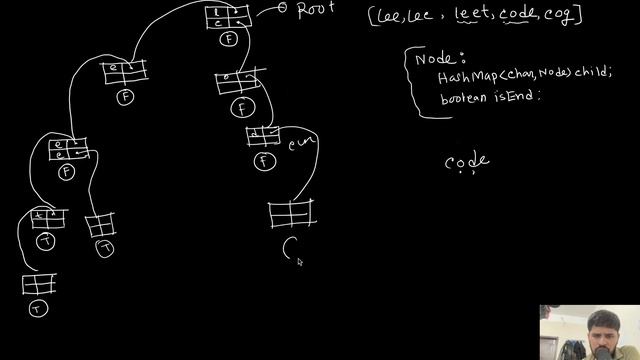 Root
[lee, lec, leet, code, cog]
Node:
HashMap<char, Node> child;
boolean isEnd;
code
l
c
F
e
F
o
F
d
F
e
e
F
t
T
T
T